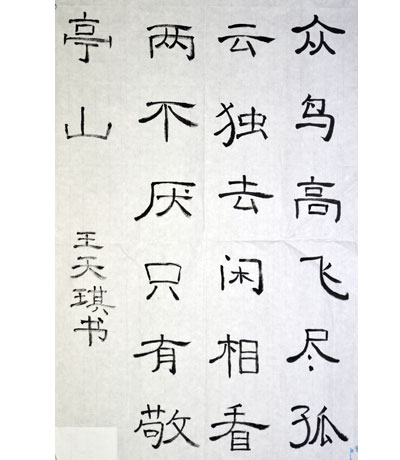 众鸟高飞尽孤
云独去闲相看
两不厌只有敬
亭山
王天琪书